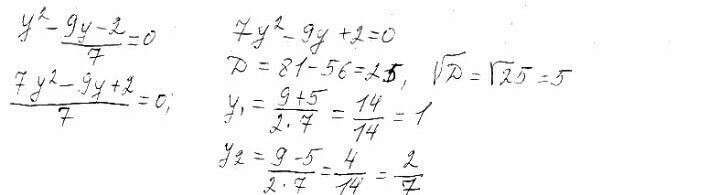 y² - (9y-2)/7 = 0
(7y² - 9y + 2)/7 = 0;
7y² - 9y + 2 = 0
D = 81 - 56 = 25, √D = √25 = 5
y₁ = (9+5)/(2·7) = 14/14 = 1
y2 = (9-5)/(2·7) = 4/14 = 2/7